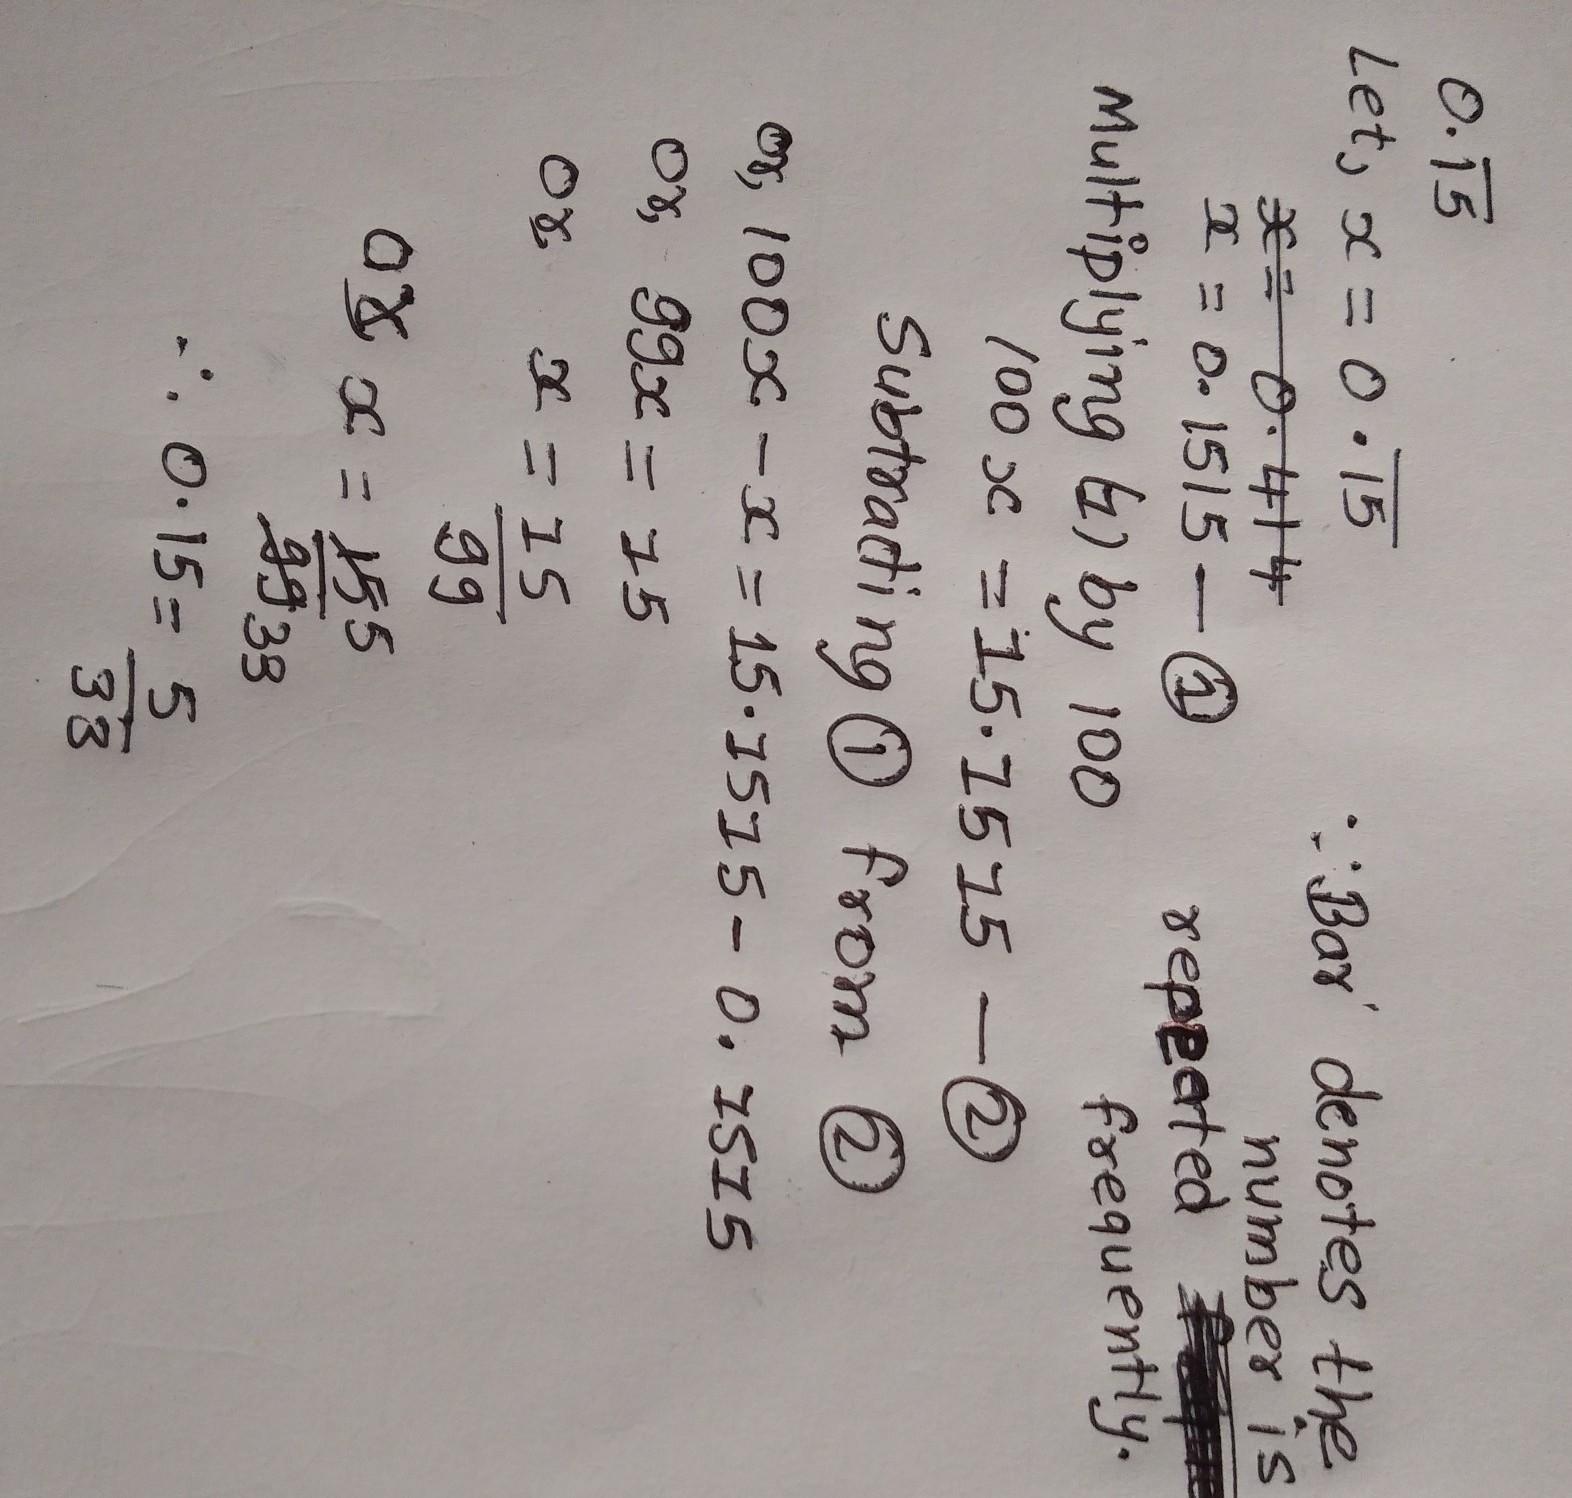 0.1̅5̅
Let, x = 0.1̅5̅ ∵ Bar denotes the
x = 0.414 number is
x = 0.1515 — ① repeated
Multiplying (1) by 100 frequently.
100x = 15.1515 — ②
Subtracting ① from ②
or, 100x - x = 15.1515 - 0.1515
or, 99x = 15
or x = 15/99
or x = 15 5/99 33
∴ 0.15 = 5/33